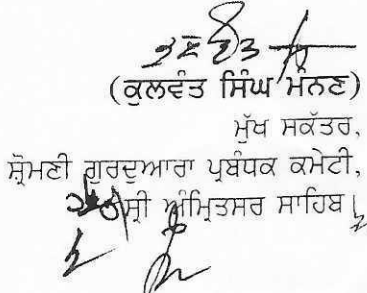 (ਕੁਲਵੰਤ ਸਿੰਘ ਮੰਨਣ)
ਮੁੱਖ ਸਕੱਤਰ,
ਸ਼੍ਰੋਮਣੀ ਗੁਰਦੁਆਰਾ ਪ੍ਰਬੰਧਕ ਕਮੇਟੀ,
ਸ੍ਰੀ ਅੰਮ੍ਰਿਤਸਰ ਸਾਹਿਬ।